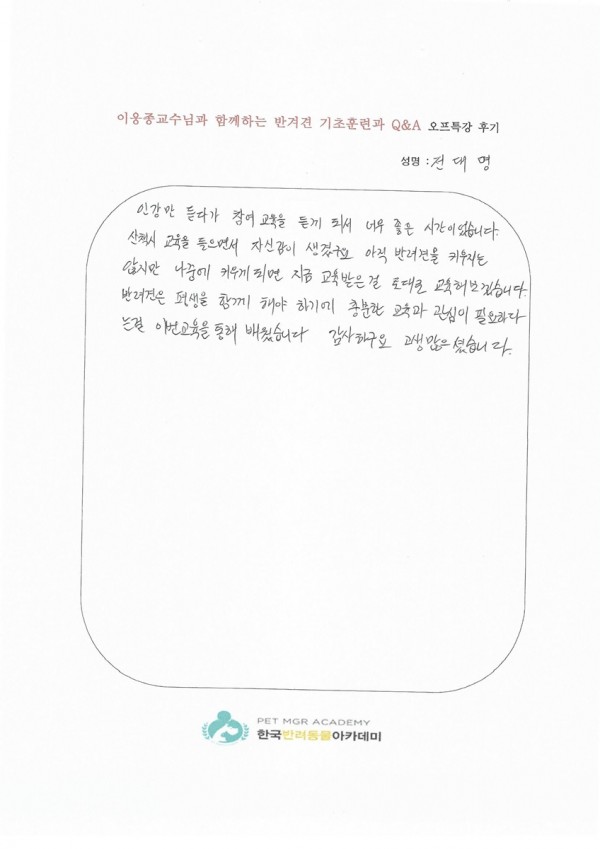 이웅종교수님과 함께하는 반겨견 기초훈련과 Q&A 오프특강 후기
성명 : 전 대 명
인강만 듣다가 참여 교육을 듣게 되서 너무 좋은 시간이었습니다.
산책시 교육을 들으면서 자신감이 생겼구요 아직 반려견을 키우지는
않지만 나중에 키우게 되면 지금 교육받은걸 토대로 교육해보겠습니다.
반려견은 평생을 함께 해야 하기에 충분한 교육과 관심이 필요하다
는걸 이번교육을 통해 배웠습니다 감사하구요 고생많으셨습니다.
PET MGR ACADEMY
한국반려동물아카데미